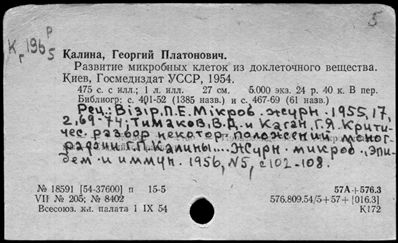 5
К г 196 р 5
Калина, Георгий Платонович.
Развитие микробных клеток из доклеточного вещества.
Киев, Госмедиздат УССР, 1954.
475 с. с илл.; 1 л. илл. 27 см. 5.000 экз. 24 р. 40 к. В пер.
Библиогр: с. 401-52 (1385 назв.) и с. 467-69 (61 назв.)
Рец.: Візір, П.Е. Мікроб. журн. 1955, 17,
2, 69-74; Тимаков, В.Д. и Каган, Г.Я. Крити-
чес. разбор некотор. положений моног-
рафии Г.П. Калины.... Журн. микроб., эпи-
дем. и иммун. 1956, N5, с 102-108.
№ 18591 [54-37600] п 15-5 57А+576.3
VII № 205; № 8402 576.809.54/5+57+[016.3]
Всесоюз. кн. палата 1 IX 54 К172